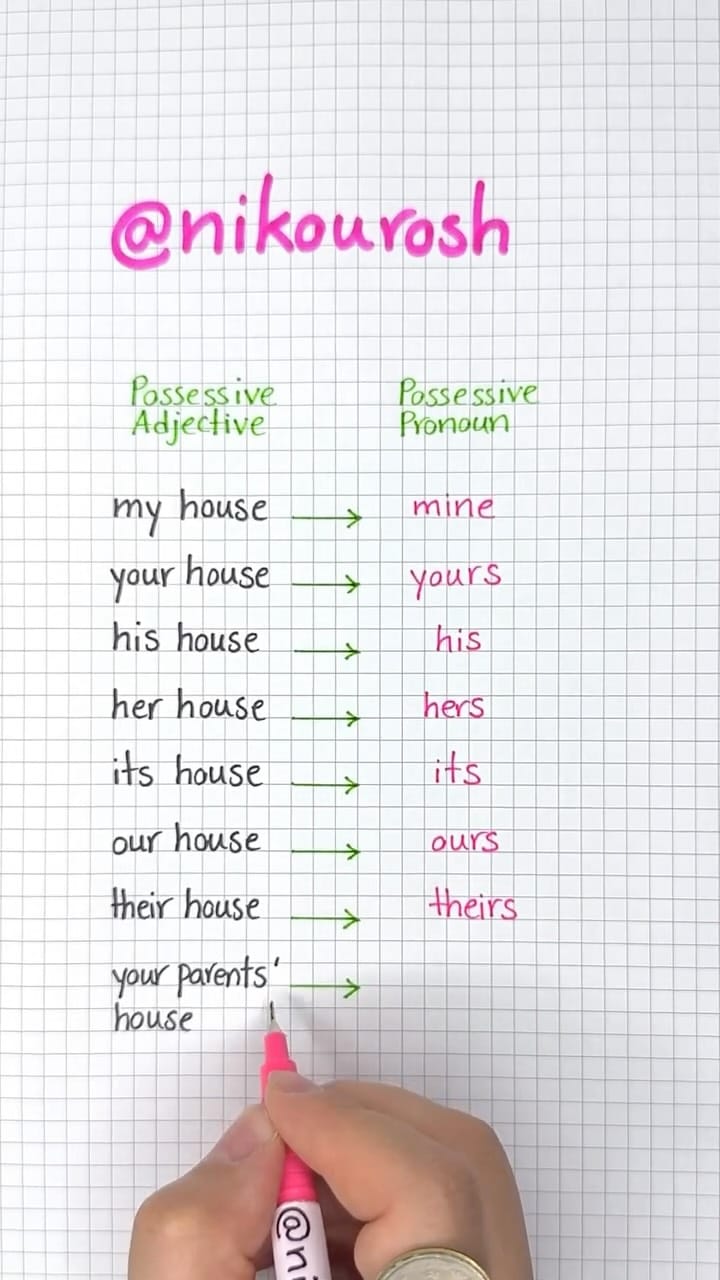 @nikourosh
Possessive Adjective
Possessive Pronoun
my house → mine
your house → yours
his house → his
her house → hers
its house → its
our house → ours
their house → theirs
your parents' →
house
@ni